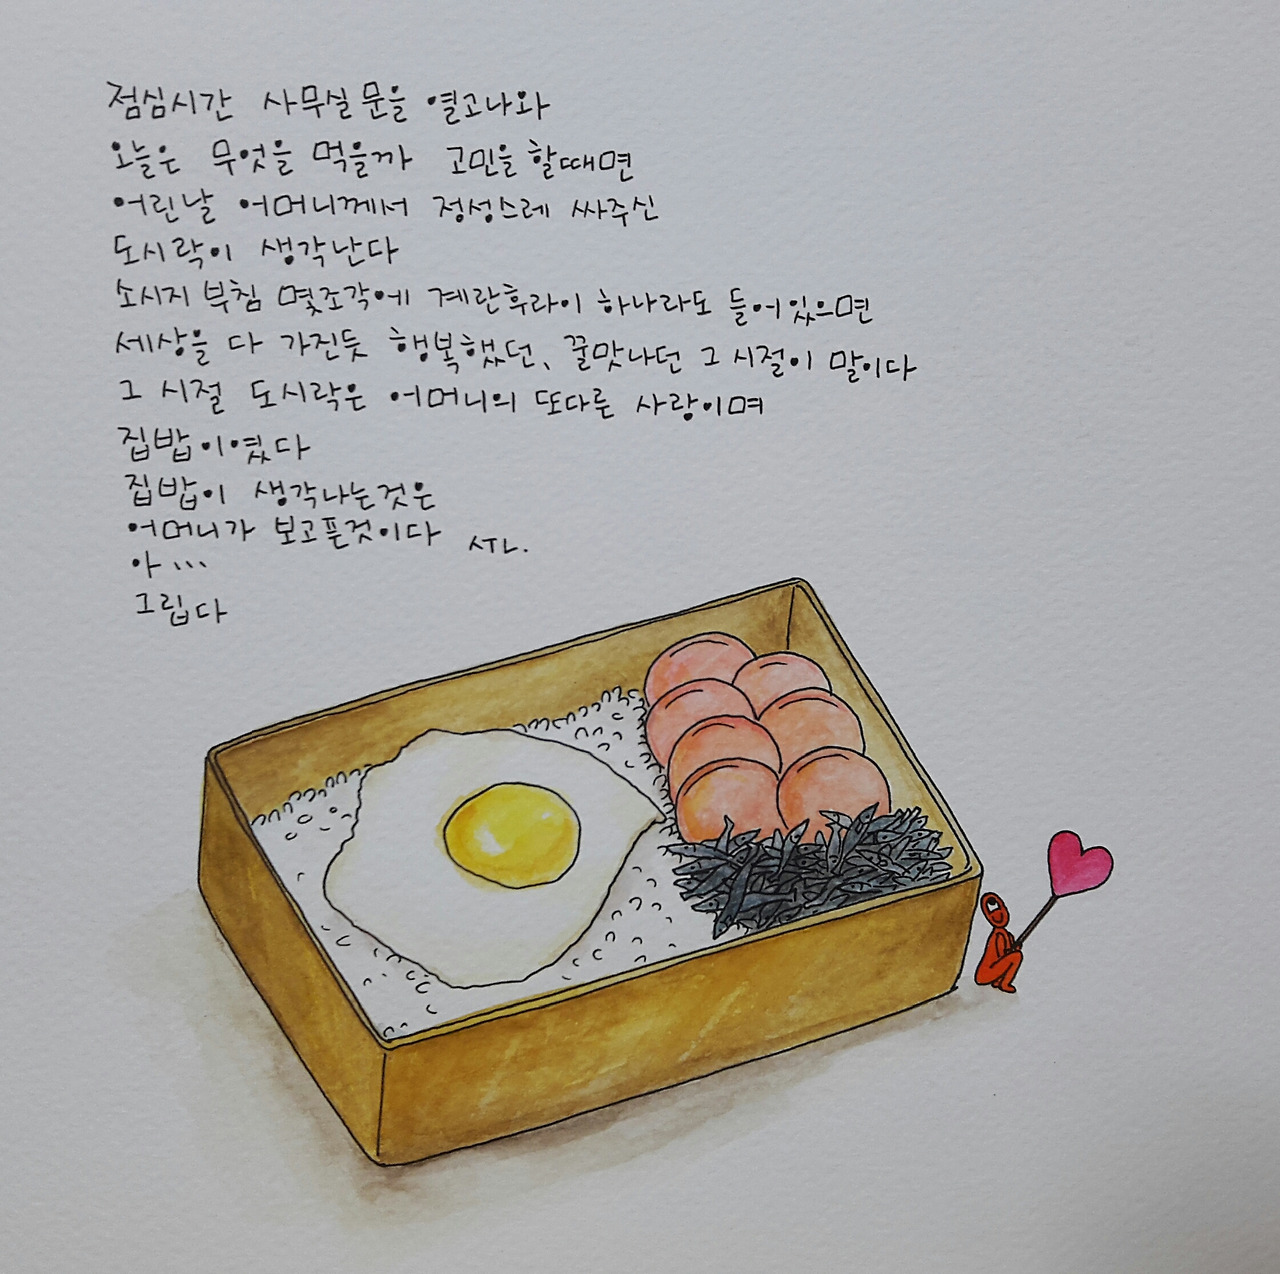 점심시간 사무실 문을 열고나와
오늘은 무엇을 먹을까 고민을 할때면
어린날 어머니께서 정성스레 싸주신
도시락이 생각난다
소시지 부침 몇조각에 계란후라이 하나라도 들어있으면
세상을 다 가진듯 행복했던, 꿀맛나던 그 시절이 말이다
그 시절 도시락은 어머니의 또다른 사랑이며
집밥이였다
집밥이 생각나는것은
어머니가 보고픈것이다
아...
그립다